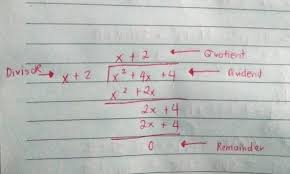 x + 2 ← Quotient
Divisor → x + 2 x² + 4x + 4 ← Dividend
x² + 2x
2x + 4
2x + 4
0 ← Remainder